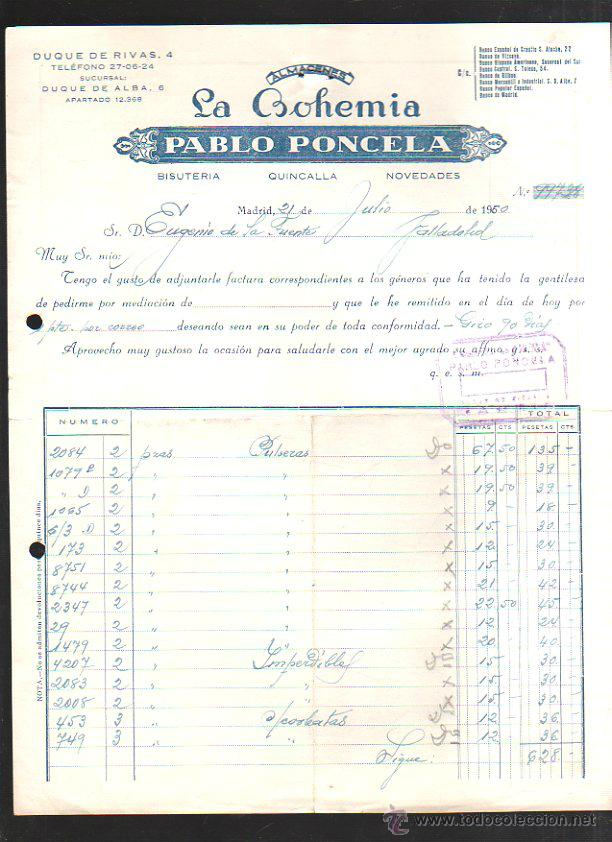 DUQUE DE RIVAS, 4
TELÉFONO 27-06-24
SUCURSAL:
DUQUE DE ALBA, 6
APARTADO 12.368
ALMACENES
La Bohemia
PABLO PONCELA
BISUTERIA QUINCALLA NOVEDADES
C/c.
Banco Español de Credito S. Atocha, 22
Banco de Vizcaya.
Banco Hispano Americano, Sucursal del Sur
Banco Central, S. Toledo, 54.
Banco de Bilbao
Banco Mercantil e Industrial, S. D. Alba, 7
Banco Popular Español.
Banco de Madrid.
N.º
Madrid, 21 de Julio de 1950
Sr. D. Eugenio de La Fuente Valladolid
Muy Sr. mio:
Tengo el gusto de adjuntarle factura correspondientes a los géneros que ha tenido la gentileza
de pedirme por mediación de y que le he remitido en el día de hoy por
pto. por correo deseando sean en su poder de toda conformidad.— Giro 90 días
Aprovecho muy gustoso la ocasión para saludarle con el mejor agrado su affmo. q. s. q.
q. e. s. m.
PABLO PONCELA
NUMERO TOTAL
PESETAS CTS. PESETAS CTS.
2084 2 pras Pulseras 67.50 135 -
1079 2 " " 19.50 39 -
" D 2 " " 19.50 39 -
1065 2 " " 9 - 18 -
6/3 D 2 " " 15 30 -
173 2 " " 12 - 24 -
8751 2 " " 15 30 -
8744 2 " " 21 42 -
2347 2 " " 22,50 45 -
29 2 " " 12 24 -
1479 2 " " 20 40 -
4207 2 " Imperdibles 15 30 -
2083 2 " " 15 30 -
2008 2 " " 15 30 -
453 3 " 12 36 -
749 3 " " 12 36 -
Sigue: 628 -
NOTA.—No se admiten devoluciones quince días.
todocoleccion